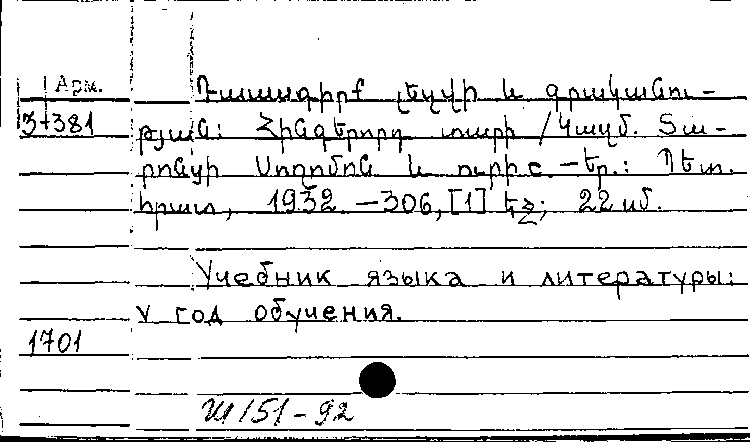 Арм.
3-381
Դասագիրք լեզվի և գրականու-
թյան: Հինգերորդ տարի / Կազմ. Տա-
րոնցի Սողոմոն և ուրիշ. – Եր.: Պետ.
հրատ, 1932 – 306, [1] եջ; 22 սմ.
Учебник языка и литературы:
V год обучения.
1701
Ш/51-92